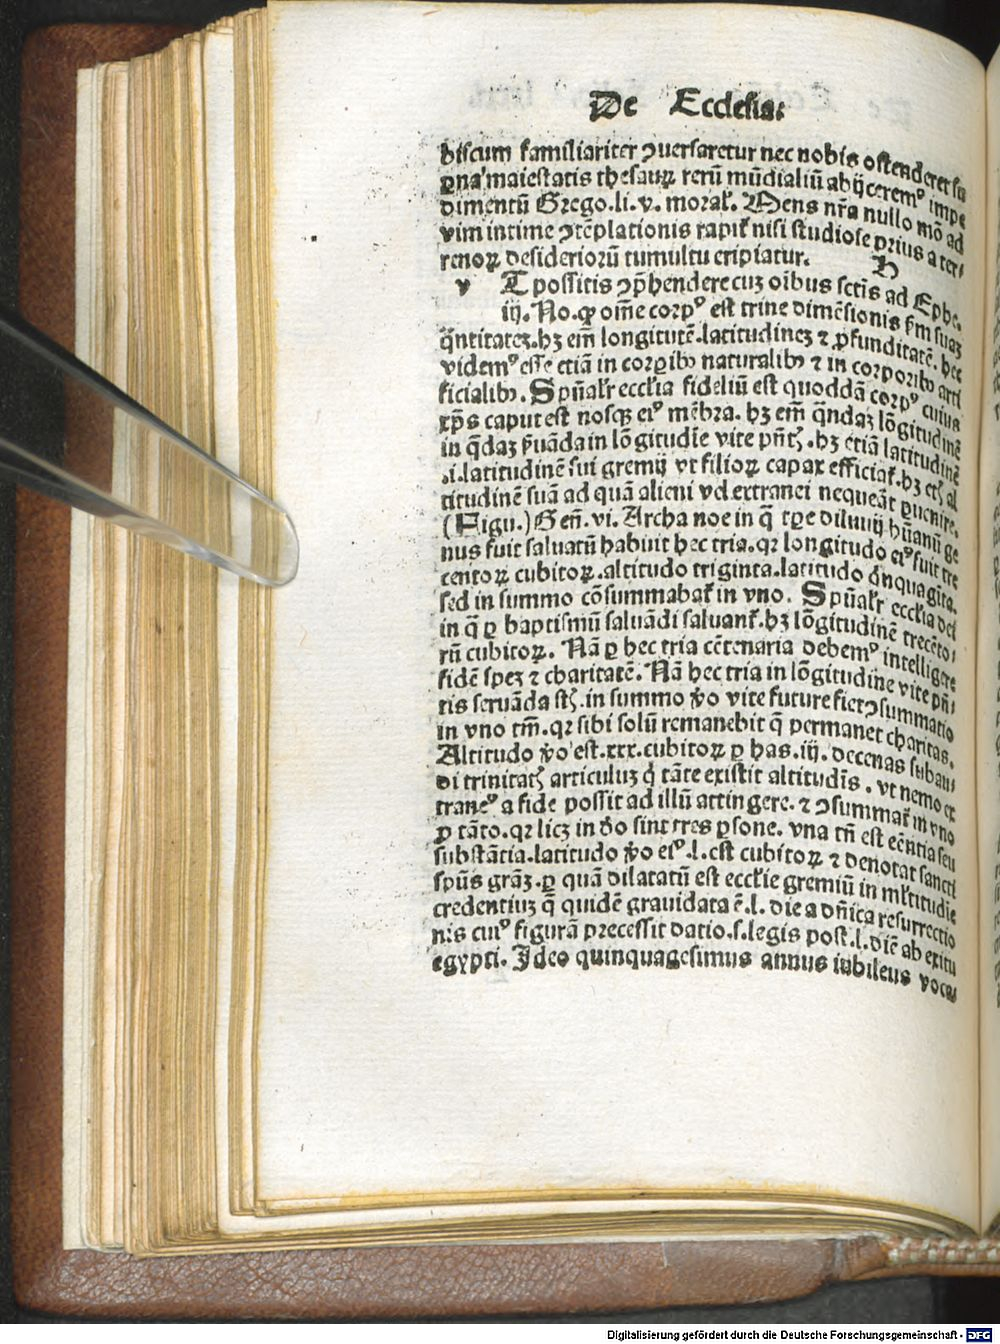 De Ecclesia.
biscum familiariter ꝯuersaretur nec nobis ostenderet su
ꝑna maiestatis thesauꝝ rerū mūdialiū abijceremꝰ impe
dimentū Grego. li. v. moral. Mens nr̄a nullo mō ad
vim intime ꝯtēplationis rapit̃ nisi studiose prius a ter⸗
renoꝝ desiderioꝝ tumultu eripiatur. H
v T possitis ꝯp̄hendere cuȝ oībus sctīs ad Ephe.
iij. No. ꝙ om̄e corpꝰ est trine dimēsionis ẜm suaȝ
q̄ntitateȝ. hȝ em̄ longitutē. latitudineȝ ⁊ ꝓfunditatē. hec
videmꝰ esse etiā in corꝑibꝫ naturalibꝫ ⁊ in corporibꝫ arti
ficialibꝫ. Spūalr̄ eccl̄ia fideliū est quoddā corpꝰ cuius
xp̄s caput est nosqȝ eiꝰ mēbra. hȝ em̄ q̄ndaȝ lōgitudinē
in q̄daȝ p̄uāda in lōgitudīe vite pn̄tꝭ. hȝ etiā latitudinē
.i. latitudinē sui gremij vt filioꝝ capax efficiat̃. hȝ etꝭ al
titudinē suā ad quā alieni vel extranei nequeāt ꝑuenire.
(Figu.) Gen̄. vi. Archa noe in q̄ tꝑe diluuij hūanū ge
nus fuit saluatū habuit hec tria. qꝛ longitudo eiꝰ fuit tre
centoꝝ cubitoꝝ. altitudo triginta. latitudo q̄nquagīta.
sed in summo cōsummabat̃ in vno. Spūalr̄ eccl̄ia dei
in q̄ ꝑ baptismū saluādi saluant̃. hȝ lōgitudinē trecēto⸗
rū cubitoꝝ. Nā ꝑ hec tria cētenaria debemꝰ intelligere
fidē speȝ ⁊ charitatē. Nā hec tria in lōgitudine vite pn̄⸗
tis seruāda stꝭ. in summo v̄o vite future fiet ꝯsummatio
in vno tm̄. qꝛ sibi solū remanebit q̄ permanet charitas.
Altitudo v̄o est. xxx. cubitoꝝ ꝑ has. iij. decenas subau⸗
di trinitatꝭ articuluȝ q̄ tāte existit altitudīs. vt nemo ex
traneꝰ a fide possit ad illū attingere. ⁊ ꝯsummat̃ in vno
ꝓ tāto. qꝛ licȝ in d̄o sint tres ꝑsone. vna tn̄ est eēntia seu
substātia. latitudo v̄o eiꝰ. l. est cubitoꝝ ⁊ denotat sancti
sp̄us grāȝ. ꝑ quā dilatatū est eccl̄ie gremiū in ml̄titudīe
credentiuȝ q̄ quidē grauidata ē. l. die a dn̄ica resurrectio
nis cuiꝰ figurā precessit datio. s. legis post. l. diē ab exitu
egypti. Ideo quinquagesimus annus iubileus voca⸗
Digitalisierung gefördert durch die Deutsche Forschungsgemeinschaft - DFG